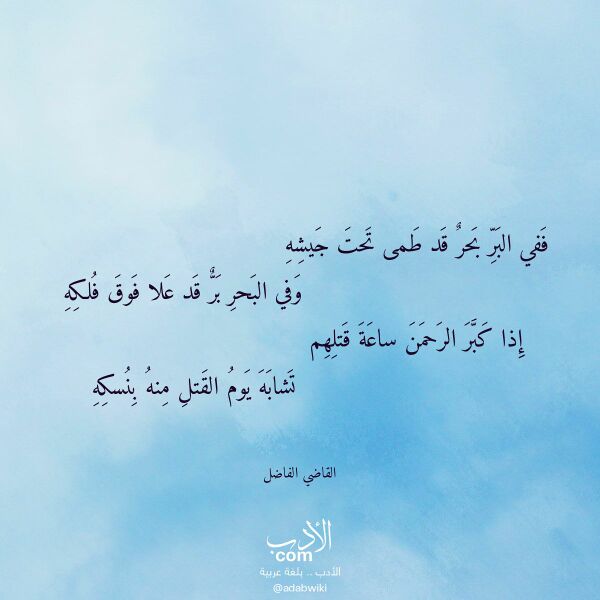 فَفي البَرِّ بَحرٌ قَد طَمى تَحتَ جَيشِهِ
وَفي البَحرِ بَرٌّ قَد عَلا فَوقَ فُلكِهِ
إِذا كَبَّرَ الرَحمَنَ ساعَةَ قَتلِهِم
تَشابَهَ يَومُ القَتلِ مِنهُ بِنُسكِهِ
القاضي الفاضل
الأدب
com
الأدب .. بلغة عربية
@adabwiki